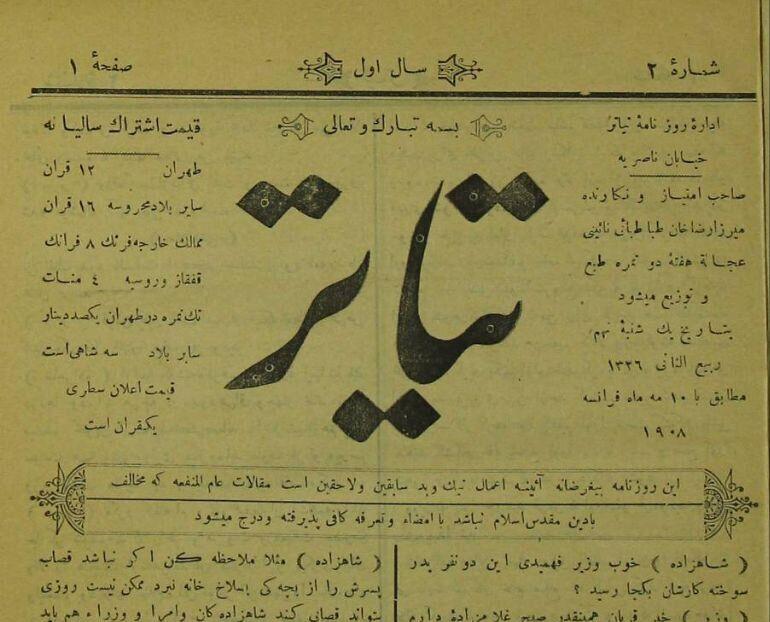 شمارهٔ ۲ سال اول صفحهٔ ۱
بسمه تبارك و تعالی
تیاتر
ادارهٔ روزنامهٔ تیاتر
خیابان ناصریه
صاحب امتیاز و نكارنده
میرزا رضاخان طباطبائی نائینی
عجالة هفتهٔ دو نمره طبع
و توزیع میشود
بتاریخ یك شنبهٔ نهم
ربیع الثانی ۱۳۲۶
مطابق با ۱۰ مه ماه فرانسه
۱۹۰۸
قیمت اشتراك سالیانه
طهران ۱۲ قران
سایر بلاد محروسه ۱۶ قران
ممالك خارجه فرنك ۸ فرانك
قفقاز و روسیه ٤ منات
تك نمره در طهران یكصد دینار
سایر بلاد سه شاهی است
قیمت اعلان سطری
یكقران است
این روزنامه بیغرضانه آئینه اعمال نیك و بد سابقین و لاحقین است مقالات عام المنفعه كه مخالف
با دین مقدس اسلام نباشد با امضاء و تعرفه كافی پذیرفته و درج میشود
( شاهزاده ) خوب وزیر فهمیدی این دو نفر پدر
سوخته كارشان بكجا رسید ؟
( وزیر ) خیر قربان همینقدر صبح غلامزادهٔ دارم
( شاهزاده ) مثلا ملاحظه كن اكر نباشد قصاب
پسرش را از بچه كی بسلاخ خانه نبرد ممكن نیست روزی
بتواند قصابی كند شاهزاده كان و امرا و وزراء هم باید